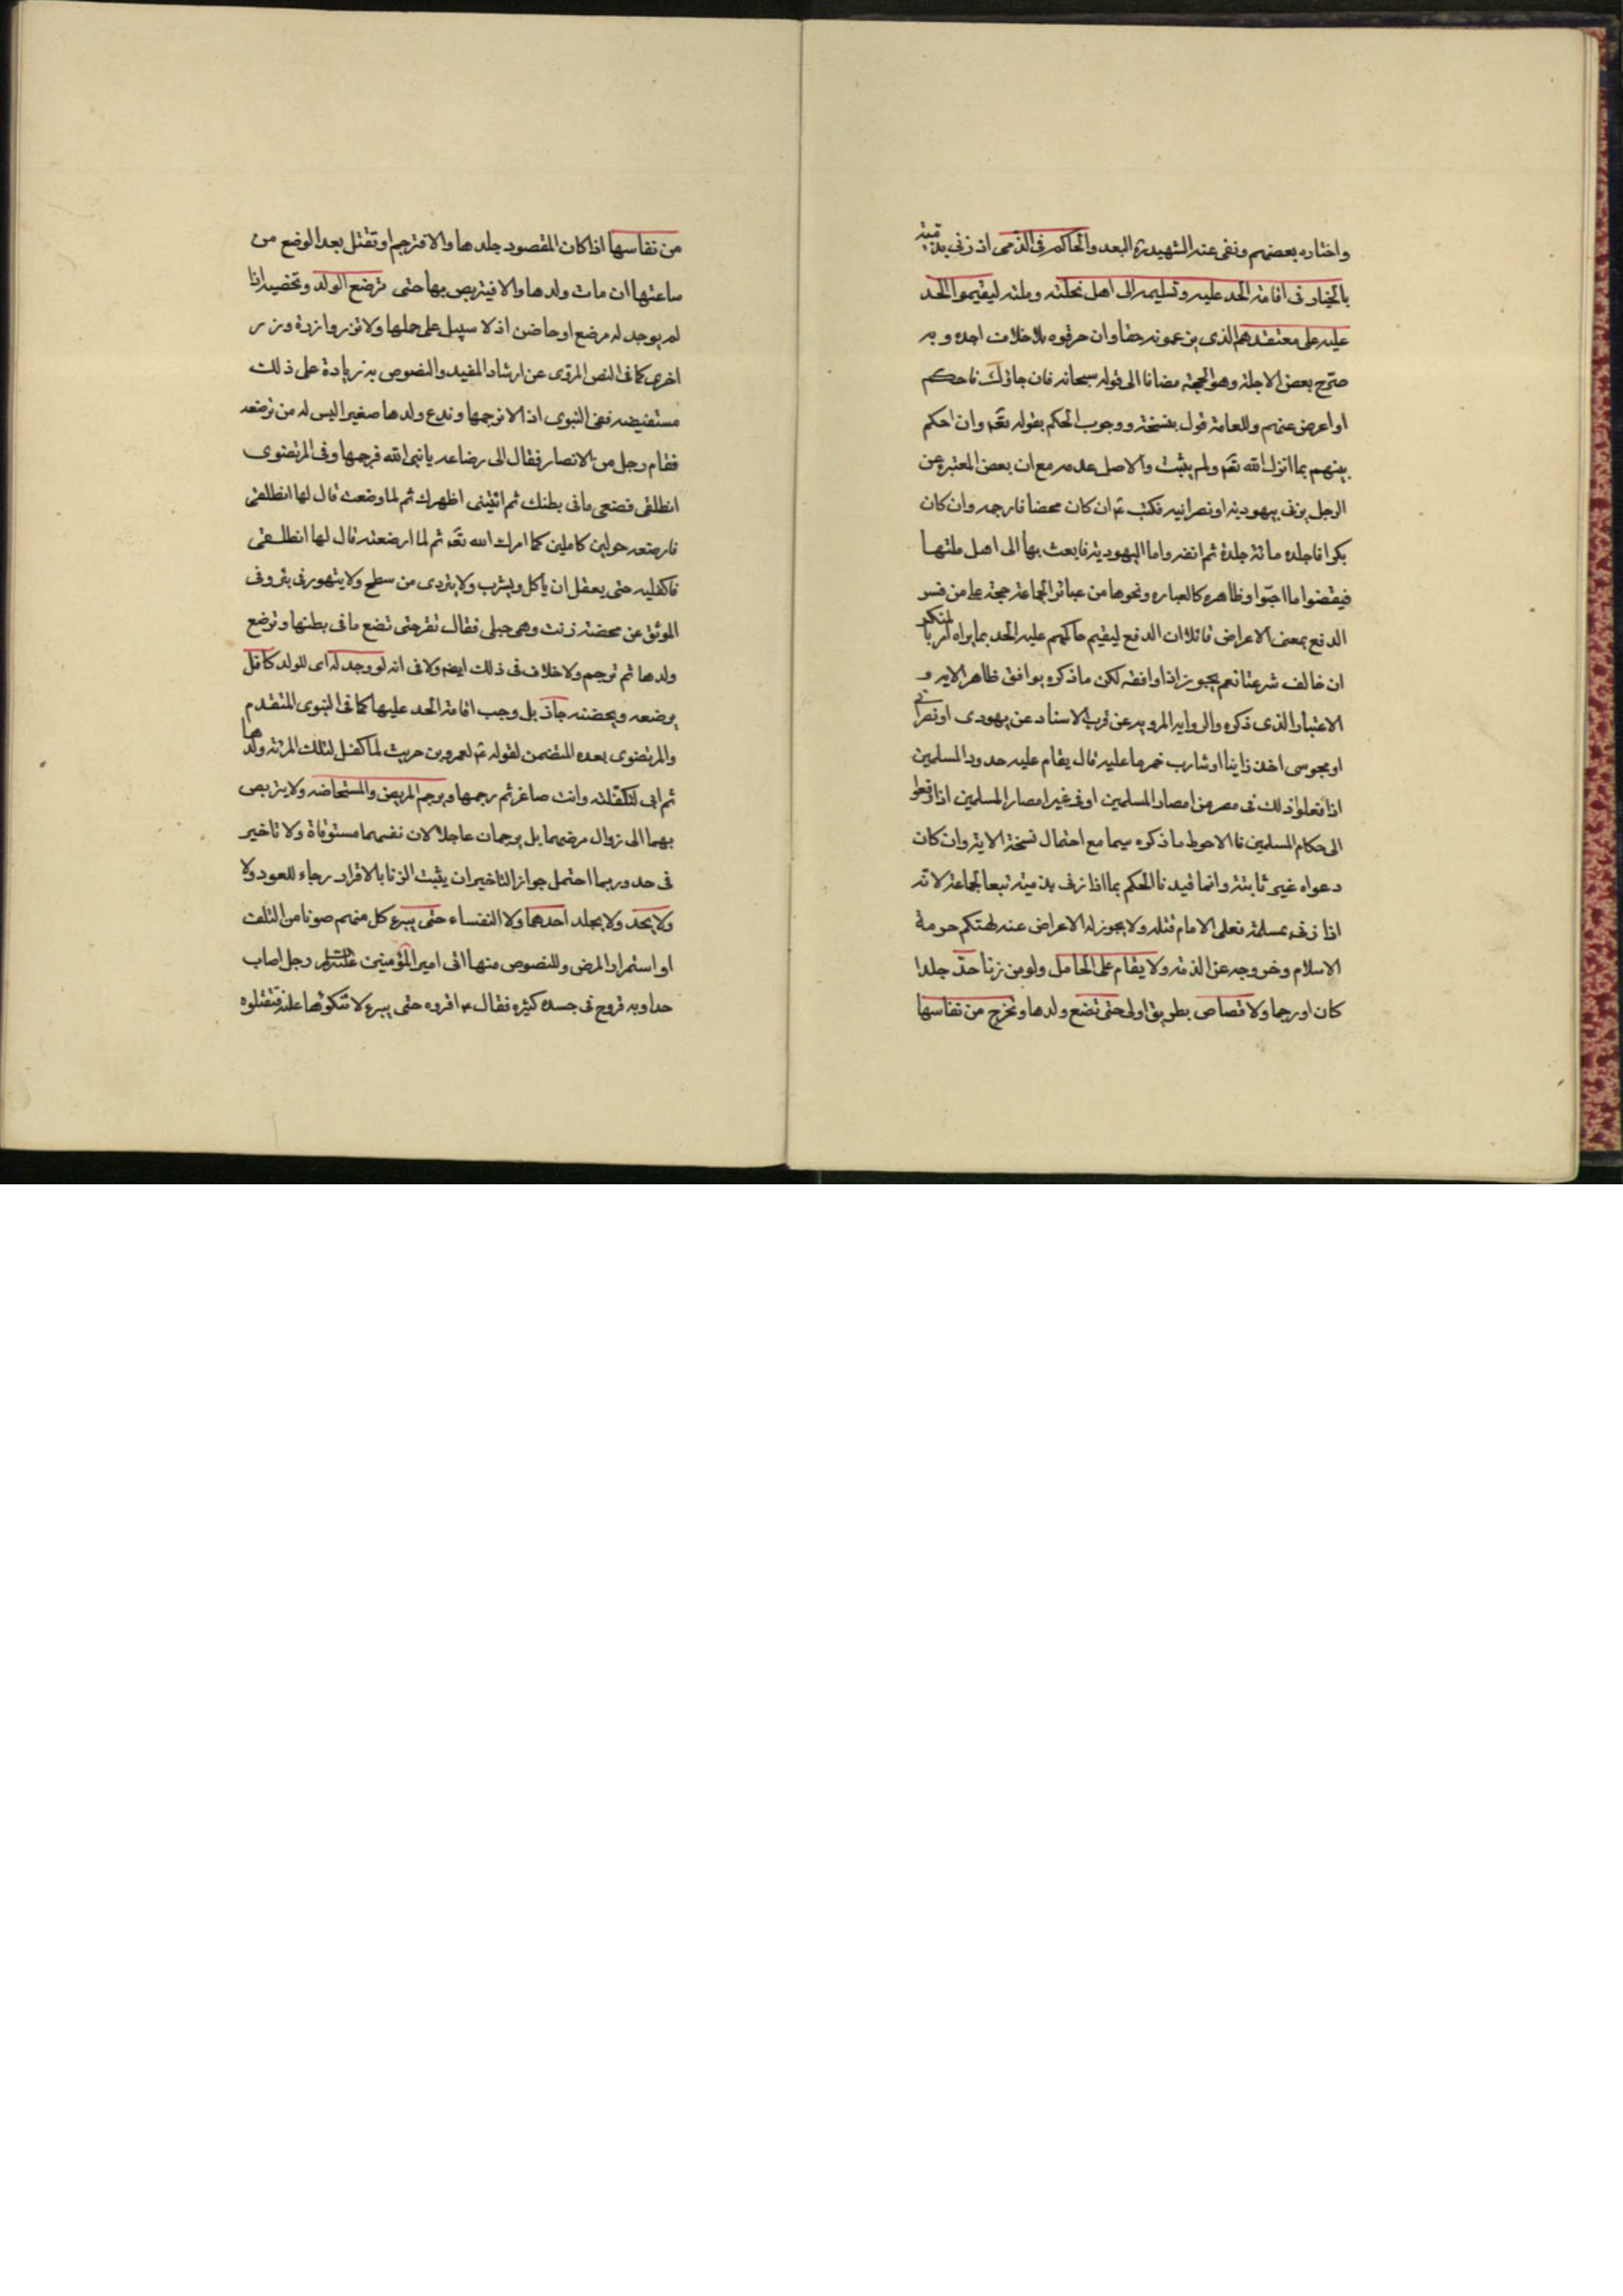 واختاره بعضهم ونفى عنه الشهيد ره البعد والحاكم فى الذمى اذ زنى بذمية
بالخيار فى اقامة الحد عليه وتسليمه الى اهل نحلته وملته ليقيموا الحد
عليه على معتقدهم الذى يزعمونه حقا وان حرفوه بلا خلاف اجده وبه
صرّح بعض الاجلة وهو الحجة مضافا الى قوله سبحانه فان جاؤك فاحكم
او اعرض عنهم وللعامة قول بنسخه ووجوب الحكم بقوله تعٓ وان احكم
بينهم بما انزل الله تعٓ ولم يثبت والاصل عدمه مع ان بعض المعتبره عن
الرجل يزنى بيهودية او نصرانيه فكتب عٓ ان كان محصنا فارجمه وان كان
بكرا فاجلده مائة جلدة ثم انفه واما اليهودية فابعث بها الى اهل ملتها
فيقضوا ما احبّوا وظاهره كالعباره ونحوها من عبائر الجماعة حجة على من فسر
الدفع بمعنى الاعراض قائلا ان الدفع ليقيم حاكمهم عليه الحد بما يراه امر بالمنكر
ان خالف شرعنا نعم يجوز اذا وافقه لكن ما ذكره يوافق ظاهر الايه و
الاعتبار الذى ذكره والروايه المرويه عن قرب الاسناد عن يهودى او نصرانى
او مجوسى اخذ زانيا او شارب خمر ما عليه قال يقام عليه حدود المسلمين
اذا فعلوا ذلك فى مصر من امصار المسلمين او فى غير امصار المسلمين اذا رفعوا
الى حكام المسلمين فالاحوط ما ذكره سيما مع احتمال نسخة الاية وان كان
دعواه غير ثابتة وانما قيدنا الحكم بما اذا زنى بذمية تبعا لجماعة لانه
اذا زنى بمسلمة فعلى الامام قتله ولا يجوز له الاعراض عنه لهتكه حرمة
الاسلام وخروجه عن الذمة ولا يقام على الحامل ولو من زنا حدّ جلدا
كان او رجما ولا قصاص بطريق اولى حتى تضع ولدها وتخرج من نفاسها
من نفاسها اذا كان المقصود جلدها والا فترجم او تقتل بعد الوضع من
ساعتها ان مات ولدها والا فيتربص بها حتى ترضع الولد وتحضنه اذا
لم يوجد له مرضع او حاضن اذ لا سبيل على حملها ولا تزر وازرة وزر
اخرى كما فى النص المروى عن ارشاد المفيد والنصوص به زيادة على ذلك
مستفيضه ففى النبوى اذا لا نرجمها وندع ولدها صغيرا ليس له من ترضعه
فقام رجل من الانصار فقال الى رضاعه يا نبى الله فرجمها وفى المرتضوى
انطلقى فضعى ما فى بطنك ثم ائتينى اطهرك ثم لما وضعت قال لها انطلقى
فارضعه حولين كاملين كما امرك الله تعٓ ثم لما ارضعته قال لها انطلقى
فاكفليه حتى يعقل ان يأكل ويشرب ولا يتردى من سطح ولا يتهور فى بئر وفى
الموثق عن محصنة زنت وهى حبلى فقال تقر حتى تضع ما فى بطنها وترضع
ولدها ثم ترجم ولا خلاف فى ذلك ايضه ولا فى انه لو وجد له اى للولد كافل
يرضعه ويحضنه جاز بل وجب اقامة الحد عليها كما فى النبوى المتقدم
والمرتضوى بعده المتضمن لقوله عٓ لعمرو بن حريث لما كفل لتلك المرئة ولدها
ثم ابى لتكفلنه وانت صاغر ثم رجمها ويرجم المريض والمستحاضه ولا يتربص
بهما الى زوال مرضهما بل يرجمان عاجلا لان نفسهما مستوفاة ولا تاخير
فى حد وربما احتمل جواز التاخير ان يثبت الزنا بالاقرار رجاء للعود ولا
ولا يحد ولا يجلد احدهما ولا النفساء حتى يبرء كل منهم صونا من التلف
او استمرار المرض وللنصوص منها اتى امير المؤمنين عليه السلام رجل اصاب
حدا وبه قروح فى جسده كثيره فقال ع اقروه حتى يبرء لا تنكوها عليه فتقتلوه